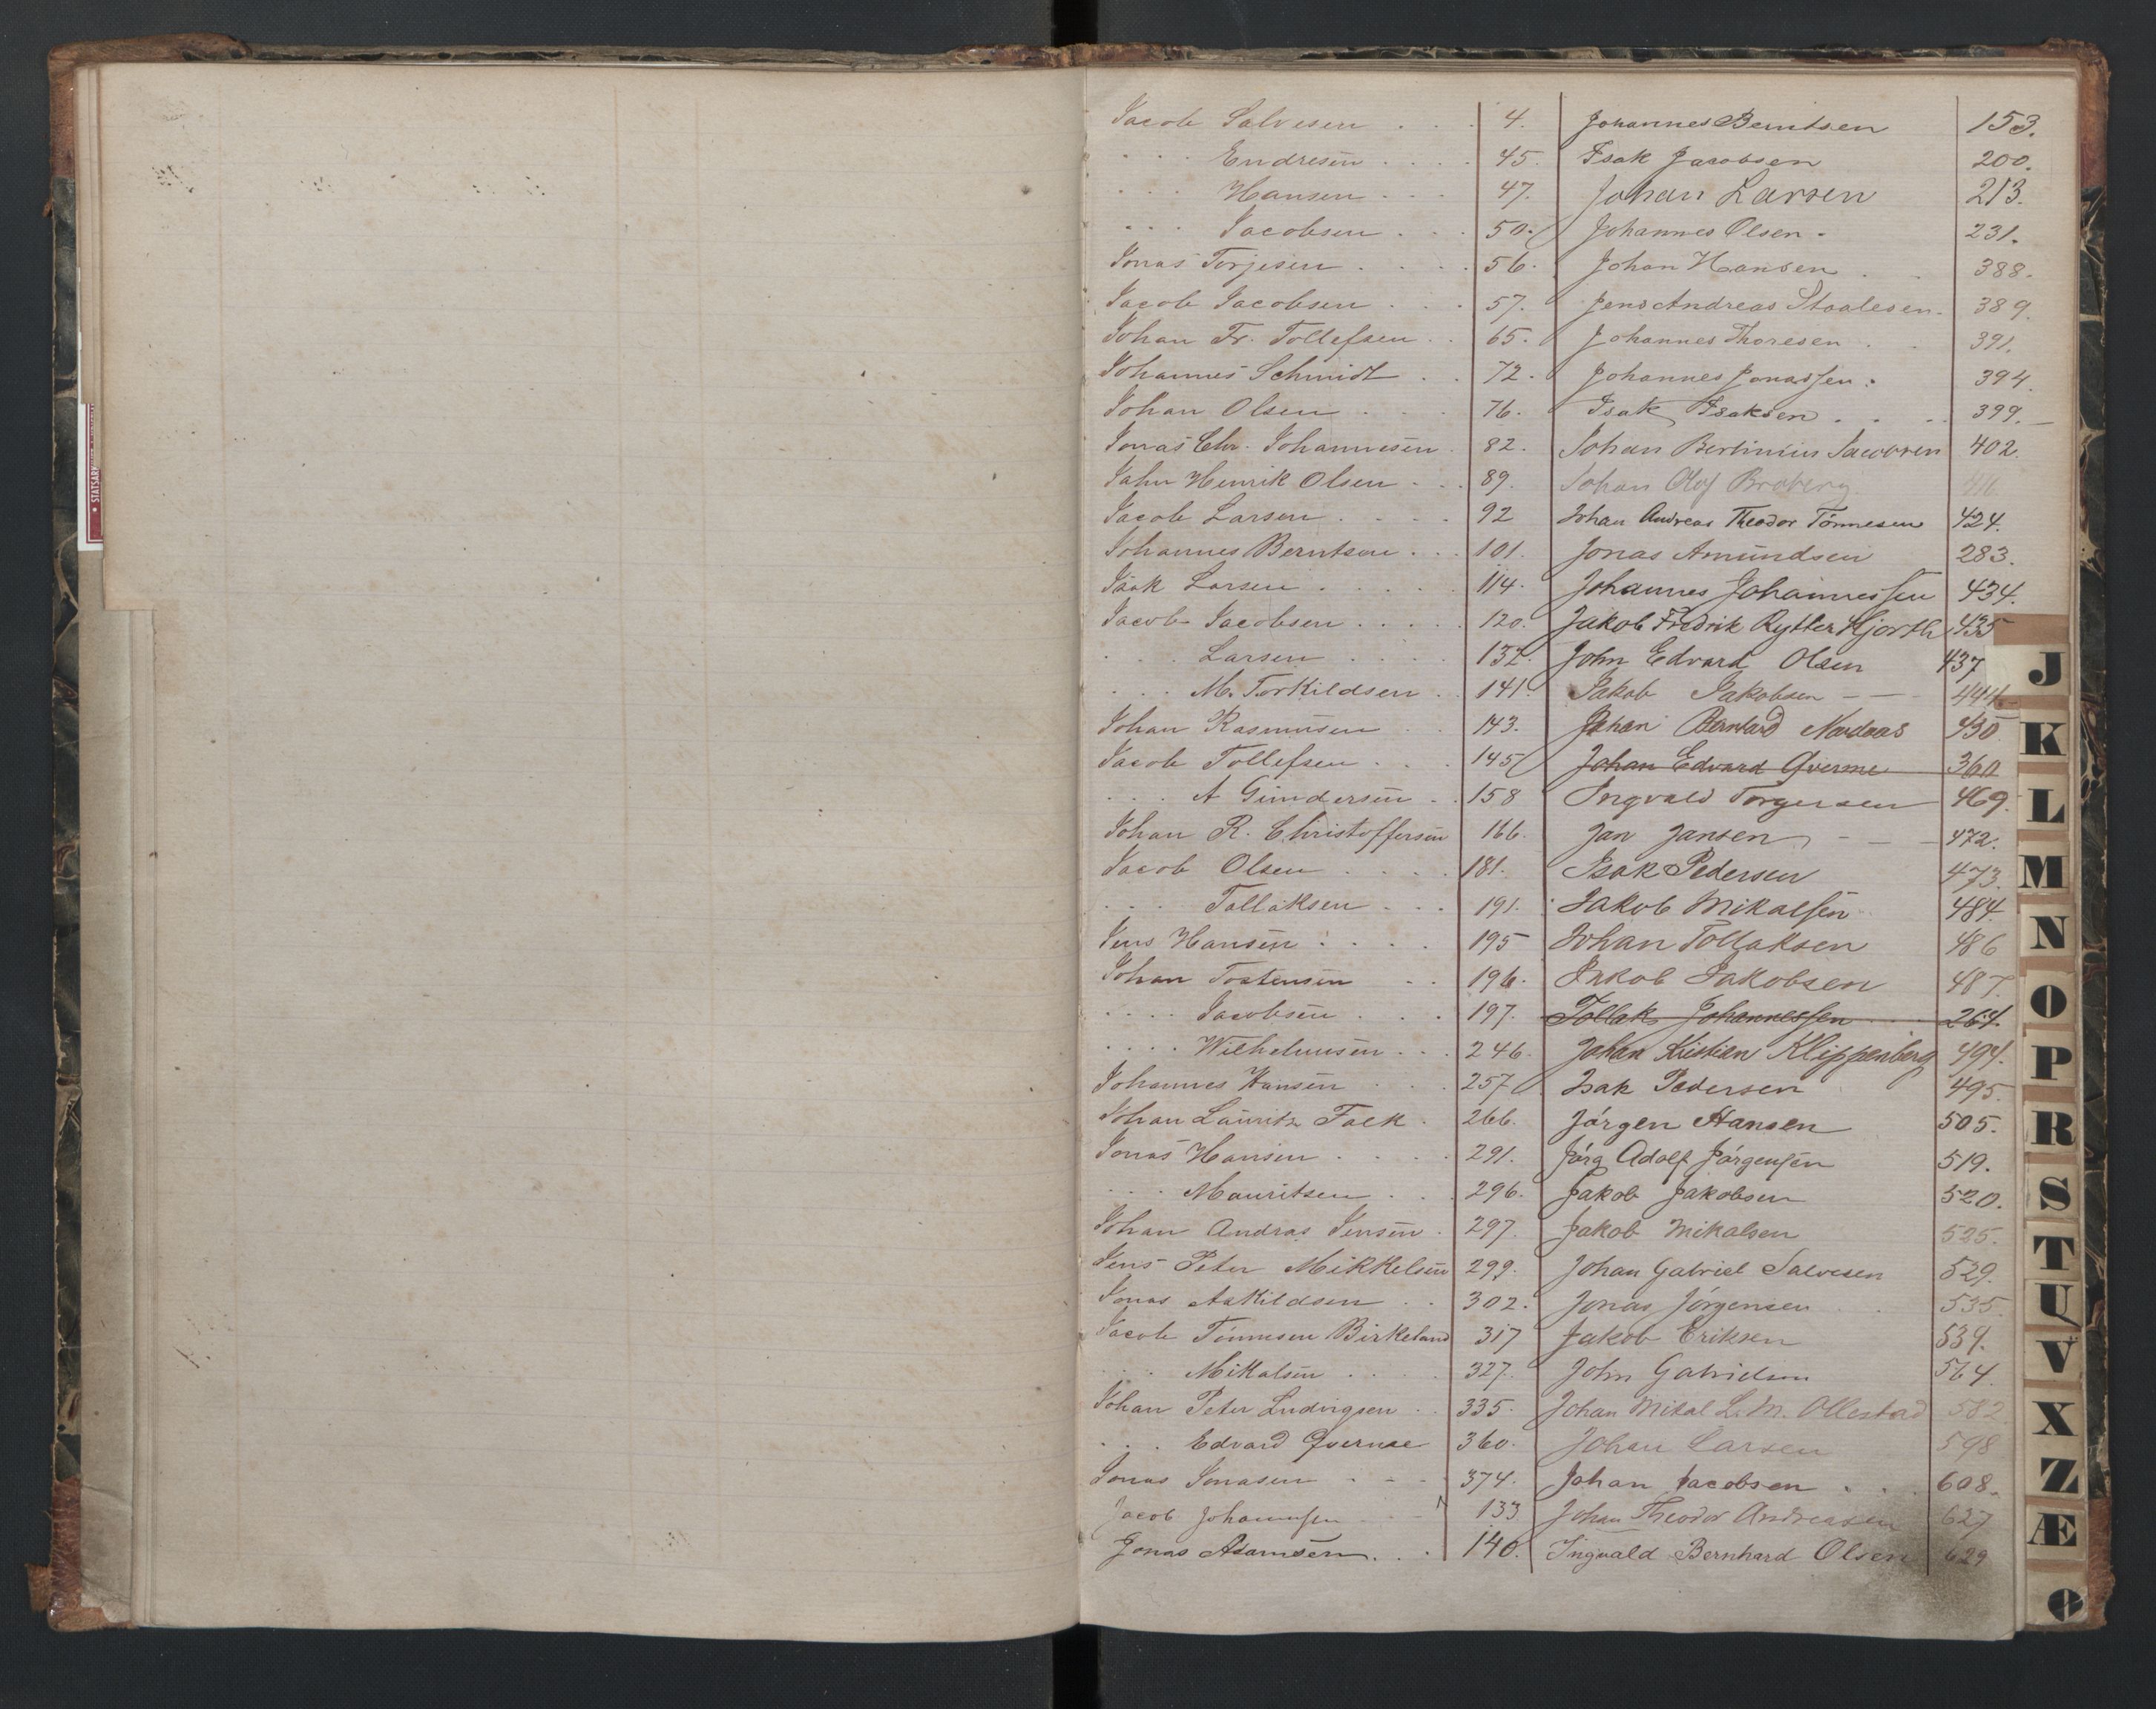 Jacob Salvesen . . . 4.
. . . Endresen . . . . 45.
. . . Hansen . . . 47.
. . . Jacobsen . . . 50.
Jonas Torjesen . . . . 56.
Jacob Jacobsen . . . 57.
Johan Fr. Tollefsen . . 65.
Johannes Schmidt . . 72.
Johan Olsen . . . 76.
Jonas Chr. Johannesen . 82.
John Henrik Olsen . . . 89.
Jacob Larsen . . . . 92
Johannes Berntsen . . . 101.
Isak Larsen . . . . . 114.
Jacob Jacobsen . . . . . 120.
. . . Larsen . . . . 132.
. . . M. Torkildsen . . 141.
Johan Rasmusen . . 143.
Jacob Tollefsen . . . 145
. . . A Gundersen . . 158
Johan R. Christoffersen 166.
Jacob Olsen . . . . 181.
. . . Tollaksen . . . 191.
Jens Hansen . . . . 195
Johan Tostensen . . 196.
. . . . Jacobsen . . . 197.
. . . . Wilhelmsen . . . 246.
Johannes Hansen . . . 257
Johan Lauritz Falk . 266.
Jonas Hansen . . . . 291.
. . . Mauritsen . . . 296.
Johan Andras Jensen . 297.
Jens Peter Mikkelsen 299.
Jonas Askildsen . . 302.
Jacob Tönnesen Birkeland 317
. . . Mikalsen . . . . 327.
Johan Peter Ludvigsen . . 335.
. . . Edvard Qvernae 360.
Jonas Jonasen . - - 374.
Jacob Johannesen - - 133
Jonas Adamsen . . . 140.
Johannes Berntsen 153.
Isak Jacobsen 200.
Johan Larsen 213.
Johannes Olsen . 231.
Johan Hansen . . 388.
Jens Andreas Staalesen . 389.
Johannes Thoresen . . 391.
Johannes Jonassen . 394.
Isak Isaksen . . . 399.
Johan Bertinius Jacobsen 402.
Johan Olof Broberg
Johan Andreas Theodor Tönnesen 424.
Jonas Amundsen 283.
Johannes Johannessen 434.
Jakob Fredrik Rytter Hjorth 435
John Edvard Olsen 437
Jakob Jakobsen - - 444
Johan Berntard Nordaas 450
Johan Edvard Qverme 360
Ingvald Torgersen 469.
Jan Jansen - - - 472.
Isak Pedersen 473.
Jakob Mikalsen 484.
Johan Tollaksen 486
Jakob Jakobsen 487.
Tollak Johannessen 264.
Johan Kristian Klippenberg 494.
Isak Pedersen 495.
Jörgen Hansen 505.
Jörg Adolf Jörgensen 519.
Jakob Jakobsen 520.
Jakob Mikalsen 525.
Johan Gabriel Salvesen 529.
Jonas Jörgensen . . 535.
Jakob Eriksen 539.
John Gabrielsen 564.
Johan Mikal L. M. Ollestad 582
Johan Larsen 598
Johan Jacobsen . . . 608.
Johan Theodor Andreasen 627
Ingvald Bernhard Olsen 629
J
K
L
M
N
O
P
R
S
T
U
V
X
Z
Æ
Ø